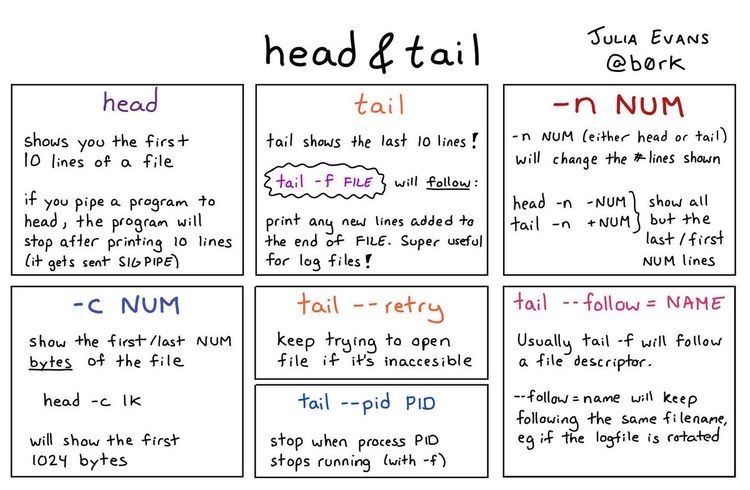 head & tail
JULIA EVANS
@b0rk
head
shows you the first
10 lines of a file
if you pipe a program to
head, the program will
stop after printing 10 lines
(it gets sent SIGPIPE)
tail
tail shows the last 10 lines!
tail -f FILE will follow:
print any new lines added to
the end of FILE. Super useful
for log files!
-n NUM
-n NUM (either head or tail)
will change the # lines shown
head -n -NUM } show all
tail -n +NUM } but the
last/first
NUM lines
-c NUM
show the first/last NUM
bytes of the file
head -c 1k
will show the first
1024 bytes
tail --retry
keep trying to open
file if it's inaccesible
tail --pid PID
stop when process PID
stops running (with -f)
tail --follow = NAME
Usually tail -f will follow
a file descriptor.
--follow=name will keep
following the same filename,
eg if the logfile is rotated